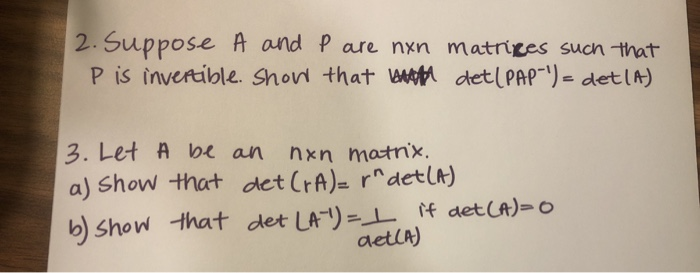 2. Suppose A and P are nxn matrices such that
P is invertible. Show that det(PAP⁻¹) = det(A)
3. Let A be an nxn matrix.
a) Show that det(rA) = rⁿ det(A)
b) Show that det(A⁻¹) = 1/det(A) if det(A)=0